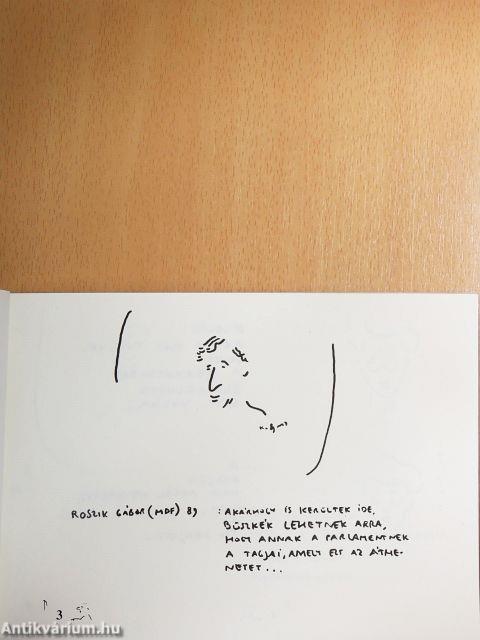 ROSZIK GÁBOR (MDF) 89 : AKÁRHOGY IS KERÜLTEK IDE,
BÜSZKÉK LEHETNEK ARRA,
HOGY ANNAK A PARLAMENTNEK
A TAGJAI, AMELY EZT AZ ÁTME-
NETET...
3
Antikvárium.hu